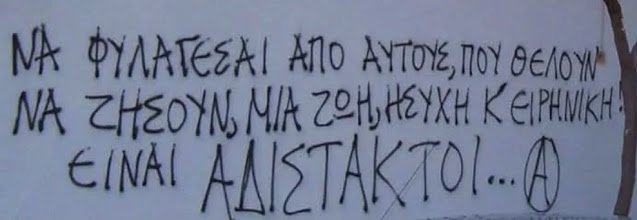 ΝΑ ΦΥΛΑΓΕΣΑΙ ΑΠΟ ΑΥΤΟΥΣ, ΠΟΥ ΘΕΛΟΥΝ
ΝΑ ΖΗΣΟΥΝ, ΜΙΑ ΖΩΗ, ΗΣΥΧΗ Κ' ΕΙΡΗΝΙΚΗ!
ΕΙΝΑΙ ΑΔΙΣΤΑΚΤΟΙ... Ⓐ